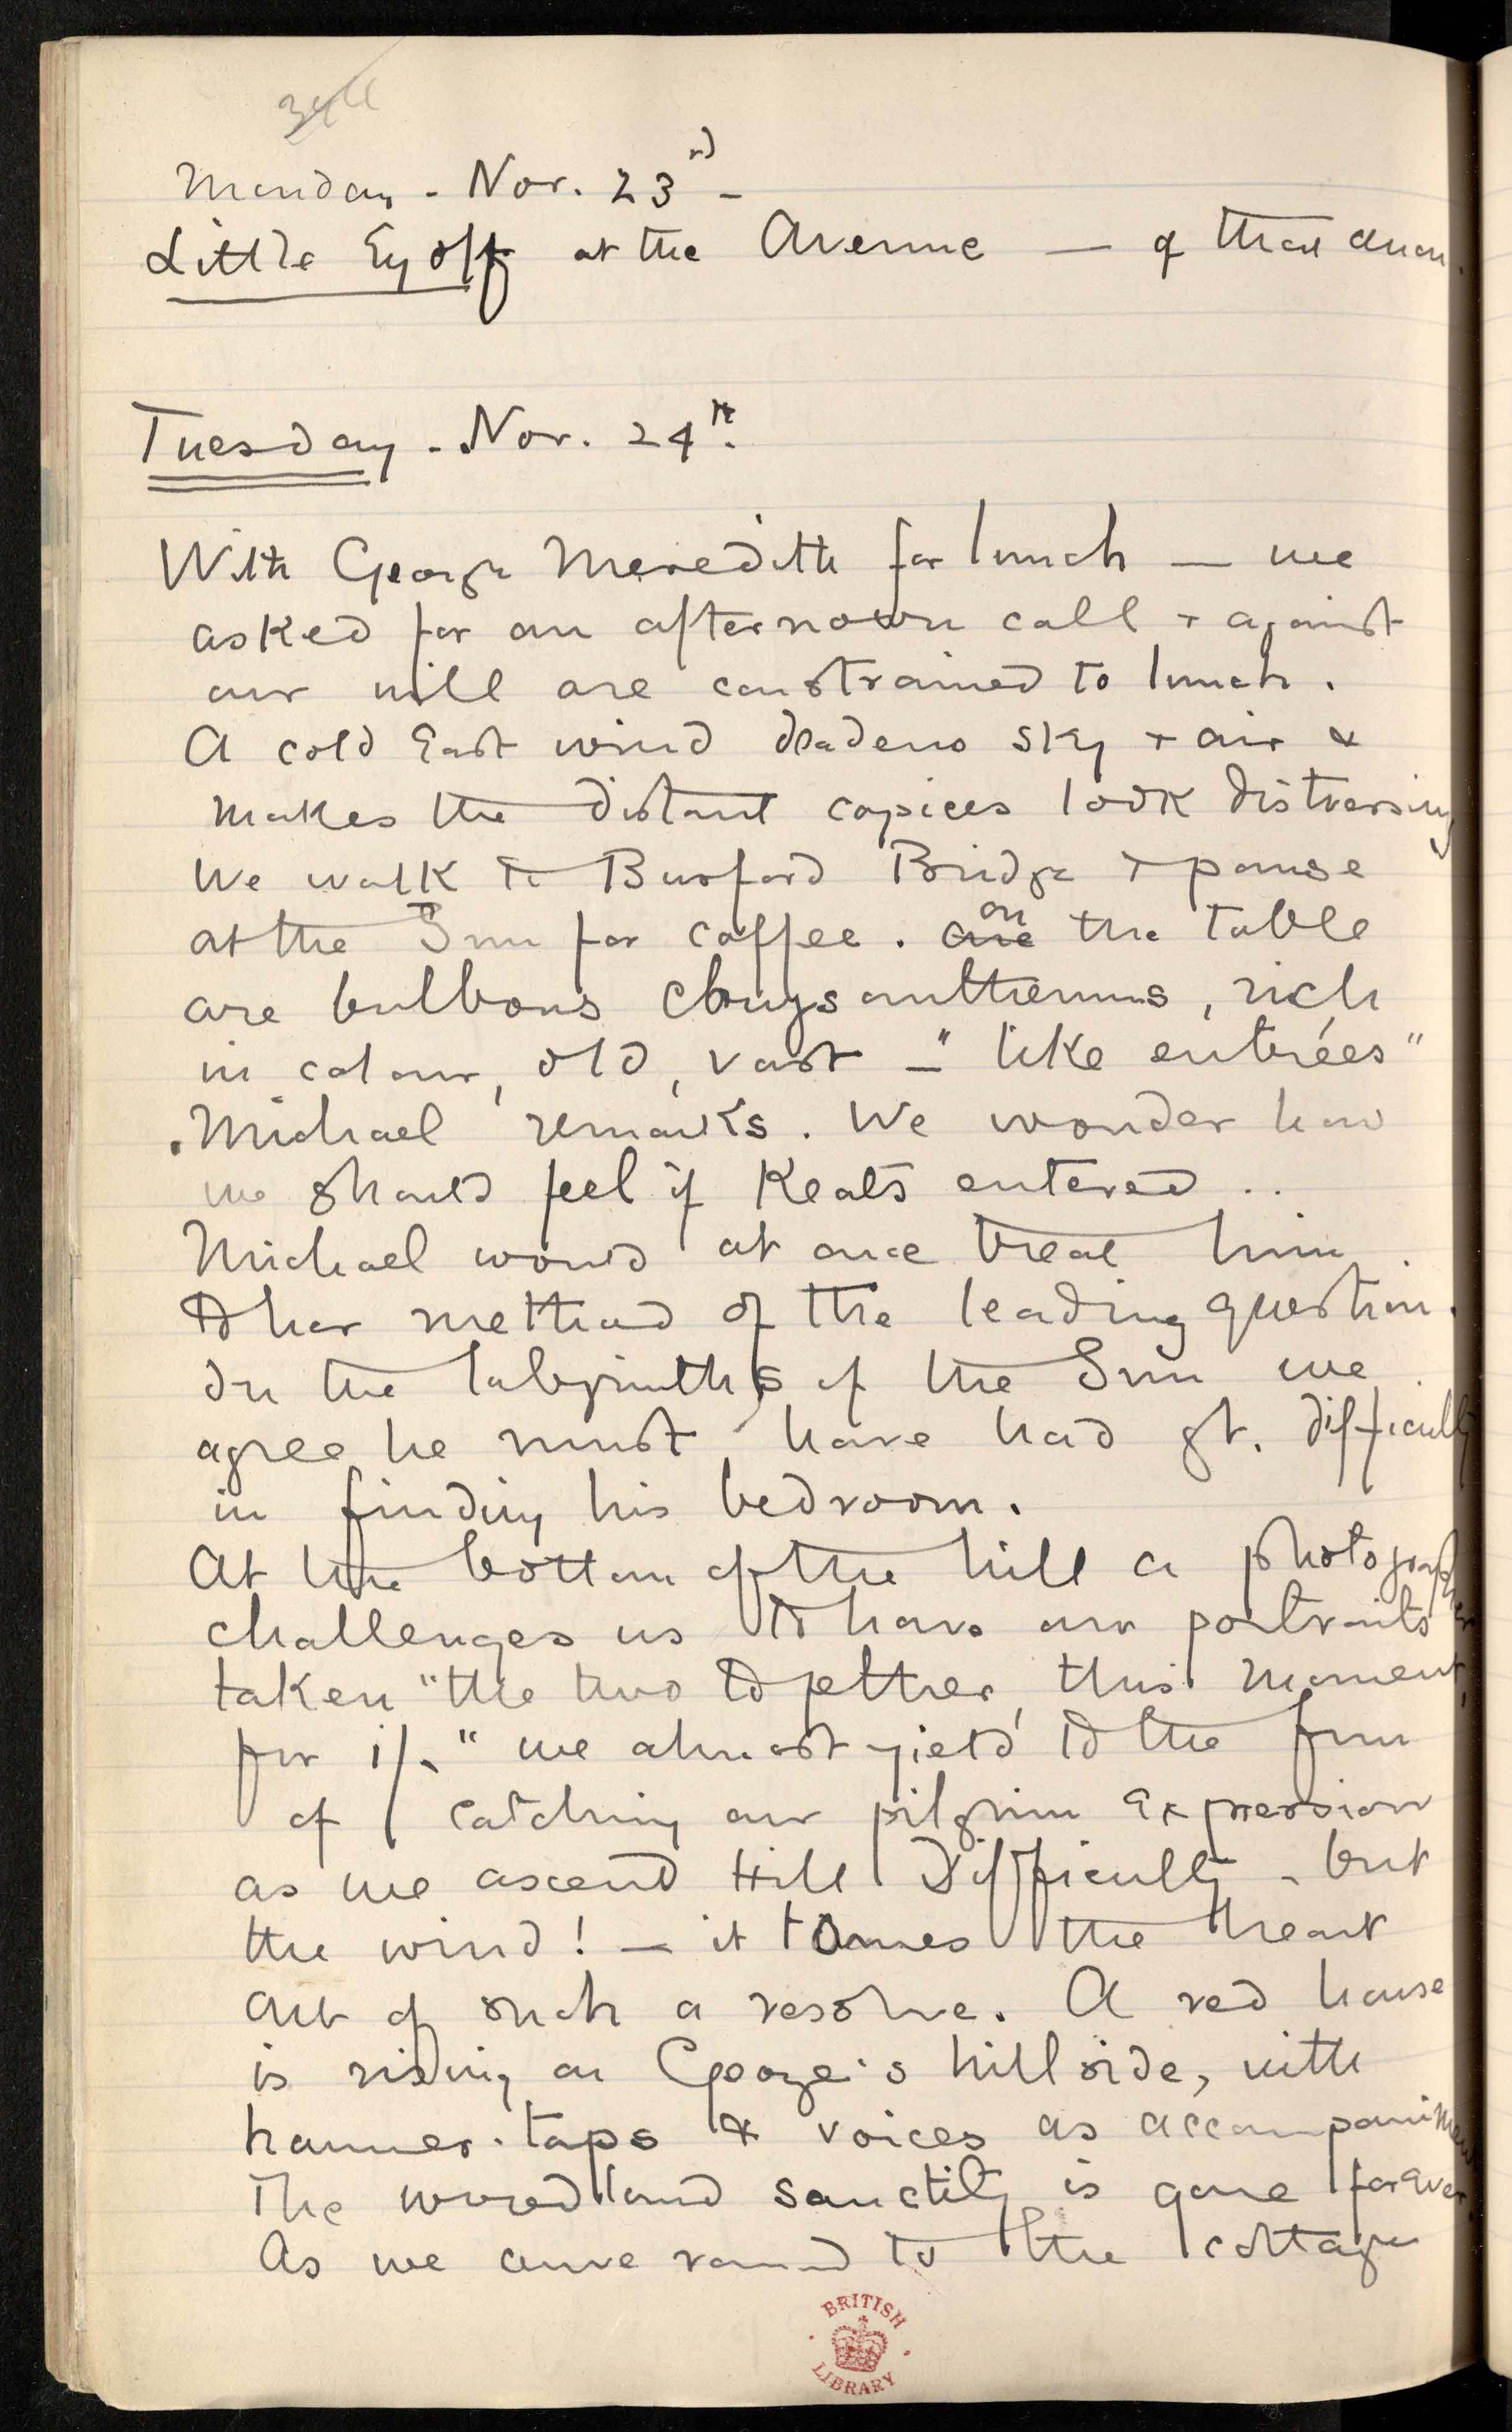 Monday - Nov. 23rd -
Little Eyolf at the Avenue — of that anon.
Tuesday - Nov. 24th.
With George Meredith for lunch — we
asked for an afternoon call & against
our will are constrained to lunch.
A cold East wind deadens sky & air &
makes the distant copices look distressing
We walk to Burford Bridge & pause
at the Inn for coffee. are on the table
are bulbous chrysanthemums, rich
in colour, old, vast — "like entrées"
Michael remarks. We wonder how
we should feel if Keats entered ..
Michael would at once treat him
to her method of the leading question.
In the labyrinths of the Inn we
agree he must have had gt. difficulty
in finding his bedroom.
At the bottom of the hill a photographer
challenges us to have our portraits
taken "the two together, this moment,
for 1/-" we almost yield to the fun
of catching our pilgrim expression
as we ascend Hill Difficulty - but
the wind! — it takes the heart
out of such a resolve. A red house
is rising on George's hillside, with
hammer-taps & voices as accompaniment
The woodland sanctity is gone forever.
As we curve round to the cottage
BRITISH
LIBRARY